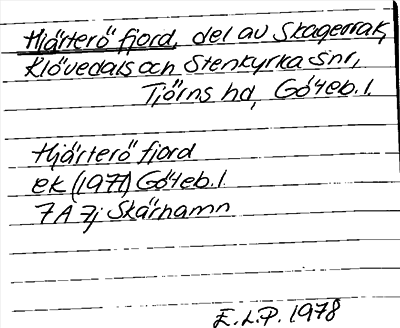 Hjärterö fjord, del av Skagerrak,
Klövedals och Stenkyrka snr,
Tjörns hd, Göteb. l.
Hjärterö fjord
ek (1977) Göteb. l.
7 A 7j Skärhamn
E.L.P. 1978